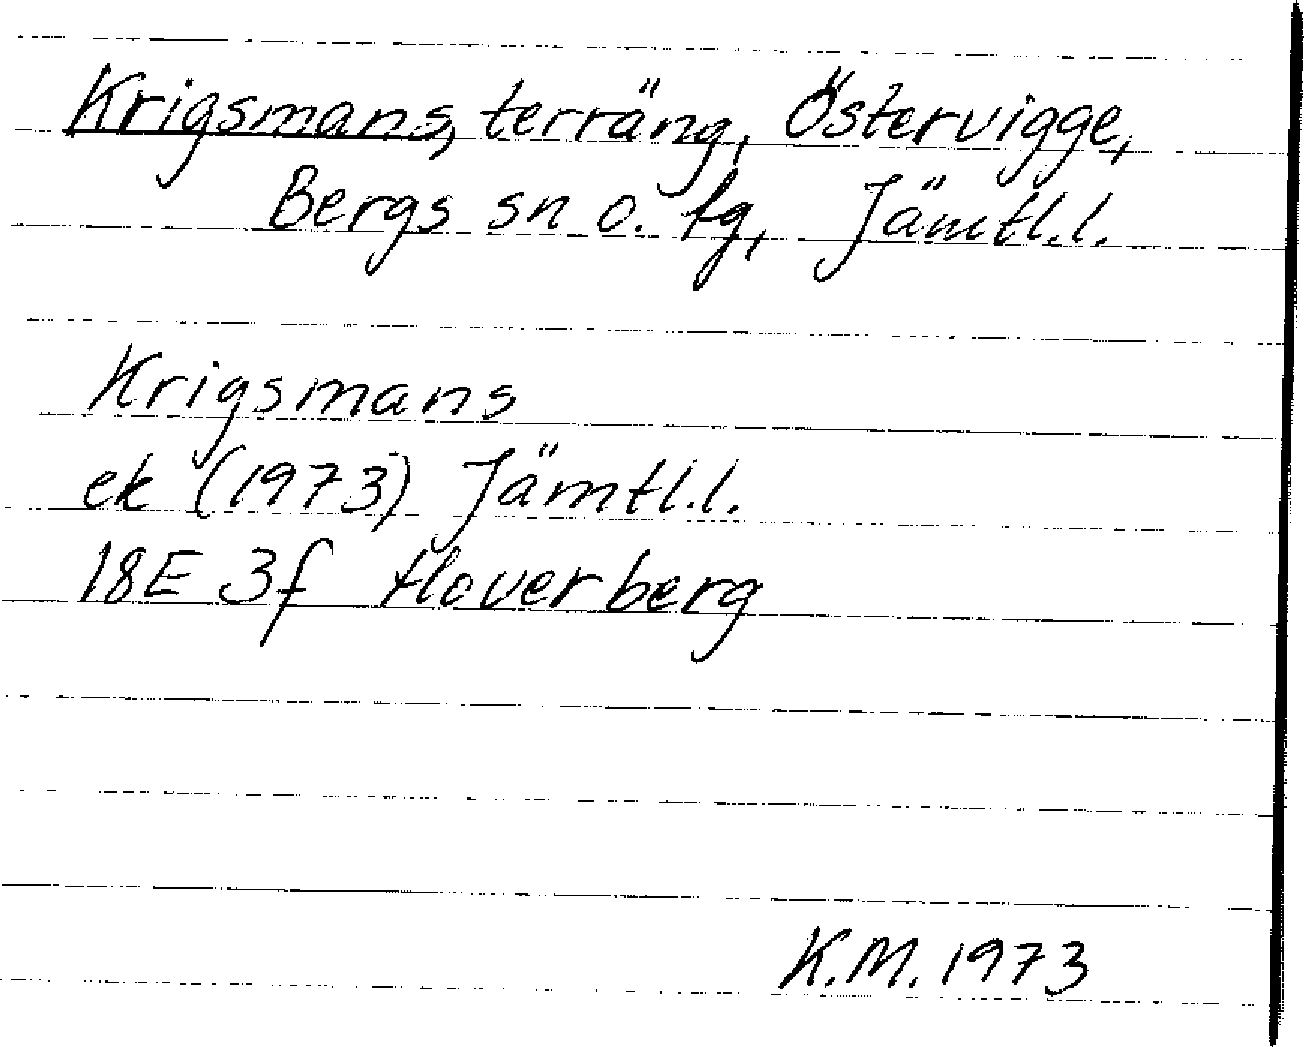 Krigsmans, terräng, Östervigge,
Bergs sn o. tg, Jämtl.l.
Krigsmans
ek (1973) Jämtl.l.
18E 3f Hoverberg
K.M. 1973